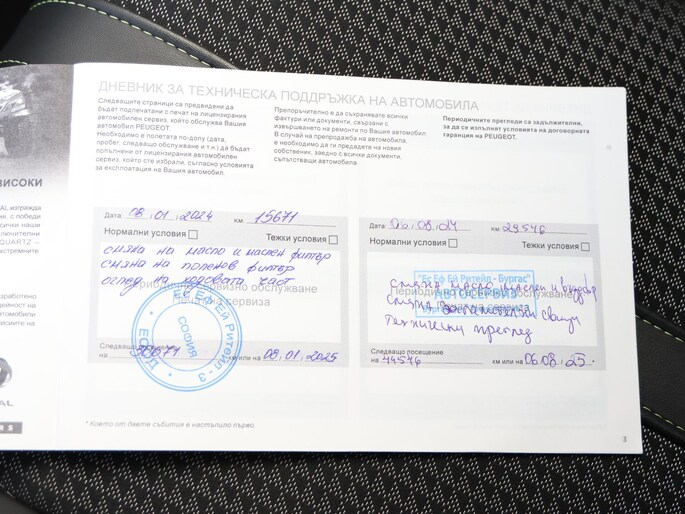 ДНЕВНИК ЗА ТЕХНИЧЕСКА ПОДДРЪЖКА НА АВТОМОБИЛА
Следващите страници са предвидени да
бъдат подпечатани с печат на лицензирания
автомобилен сервиз, който обслужва Вашия
автомобил PEUGEOT.
Необходимо е полетата по-долу (дата,
пробег, следващо обслужване и т.н.) да бъдат
попълнени от лицензирания автомобилен
сервиз, който сте избрали, съгласно условията
за експлоатация на Вашия автомобил.
Препоръчително е да съхранявате всички
фактури или документи, свързани с
извършването на ремонти по Вашия автомобил.
В случай на препродажба на автомобила,
е необходимо да ги предадете на новия
собственик, заедно с всички документи,
съпътстващи автомобила.
Периодичните прегледи са задължителни,
за да се изпълнят условията на договорната
гаранция на PEUGEOT.
ВИСОКИ
QUARTZ –
Дата 08.01.2024 км 15671
Нормални условия Тежки условия
смяна на масло и маслен филтър
смяна на поленов филтър
оглед на ходовата част
Периодично сервизно обслужване
Печат на сервиза
Ес Еф Ей Ритейл - 3
СОФИЯ
ЕООД
Следващо посещение
на 30671 км или на 08.01.2025
Дата 06.08.24 км 29546
Нормални условия Тежки условия
"Ес Еф Ей Ритейл - Бургас"
АВТОСЕРВИЗ
Периодично сервизно обслужване
Печат на сервиза
смяна масло, маслен и въздф
смяна запалителни свещи
Технически преглед
Следващо посещение
на 44546 км или на 06.08.25.
* Което от двете събития е настъпило първо.
3